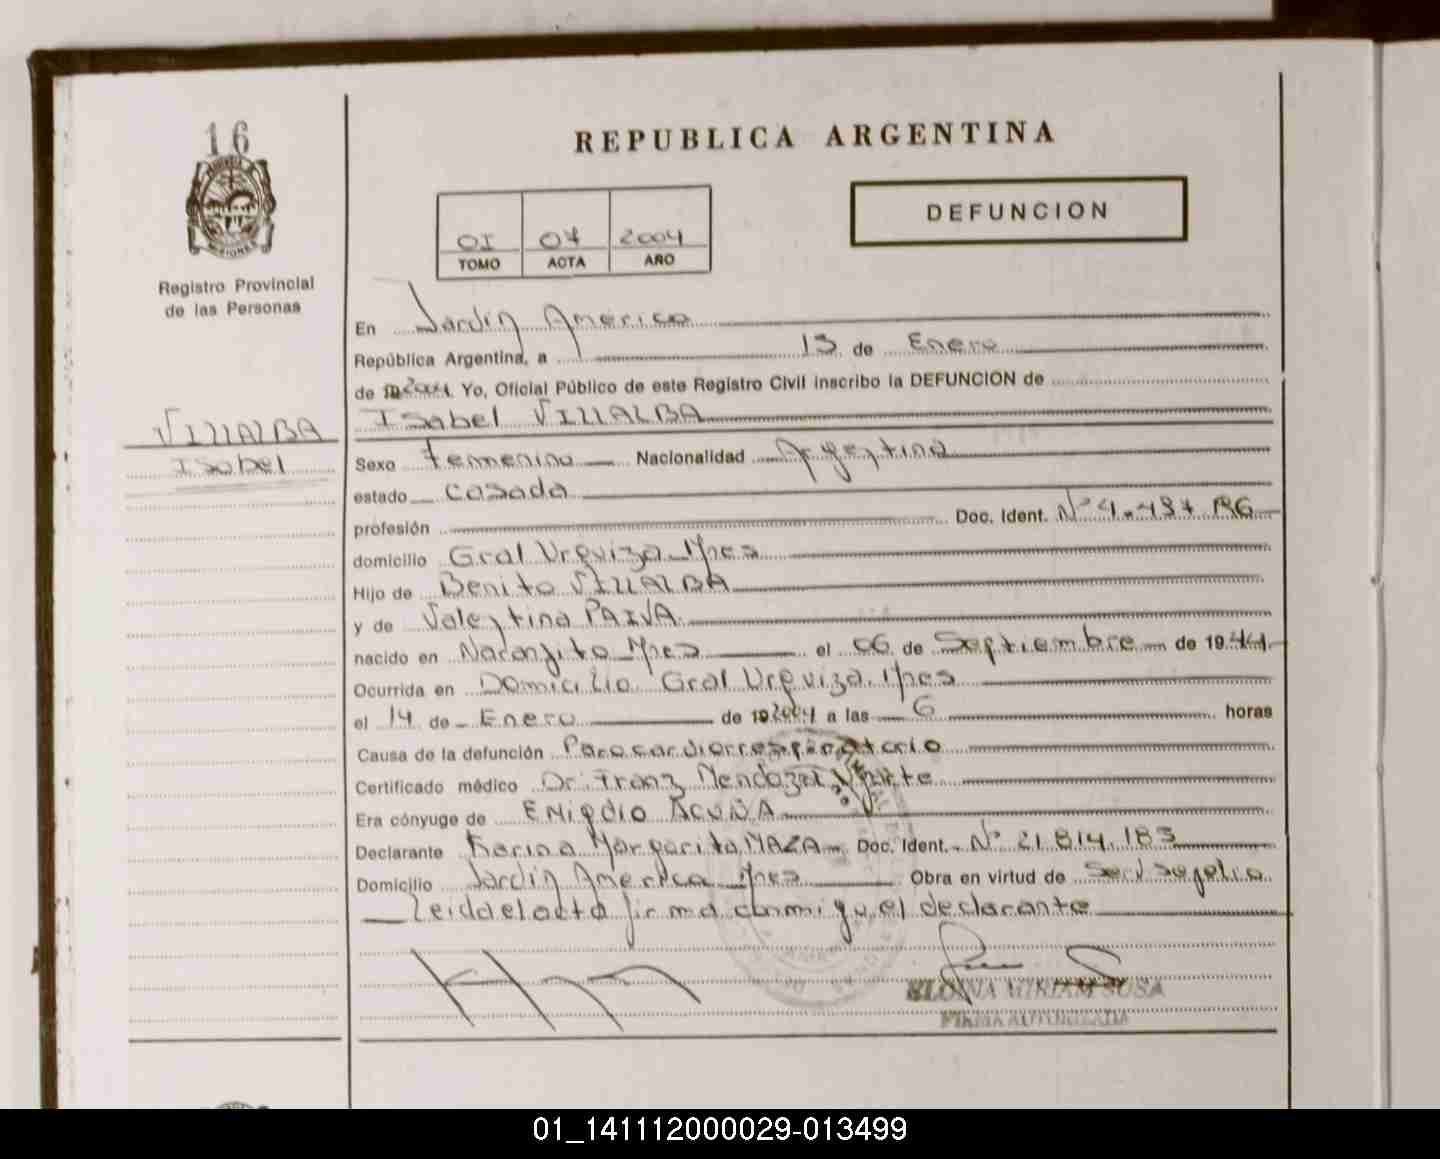 16
REPUBLICA ARGENTINA
DEFUNCION
01 07 2004
TOMO ACTA AÑO
Registro Provincial
de las Personas
En Jardin America
República Argentina, a 15 de Enero
de 2004. Yo, Oficial Público de este Registro Civil inscribo la DEFUNCION de
VILLALBA
Isabel
Isabel VILLALBA
Sexo Femenino Nacionalidad Argentina
estado Casada
profesión Doc. Ident. Nº
domicilio Gral Urquiza Mnes
Hijo de Benito VILLALBA
y de Valentina PAIVA
nacido en Naranjito Mnes el 06 de Septiembre de 1944
Ocurrida en Domicilio Gral Urquiza Mnes
el 14 de Enero de 2004 a las 6 horas
Causa de la defunción Paro cardiorrespiratorio
Certificado médico Dr. Franz Mendoza
Era cónyuge de Emigdio ACUÑA
Declarante Karina Margarita MAZA Doc. Ident. Nº 21.814.183
Domicilio Jardin America Mnes Obra en virtud de
Leida el acta firma conmigo el declarante
MIRIAM SUSA
FIRMA AUTORIZADA
01_141112000029-013499